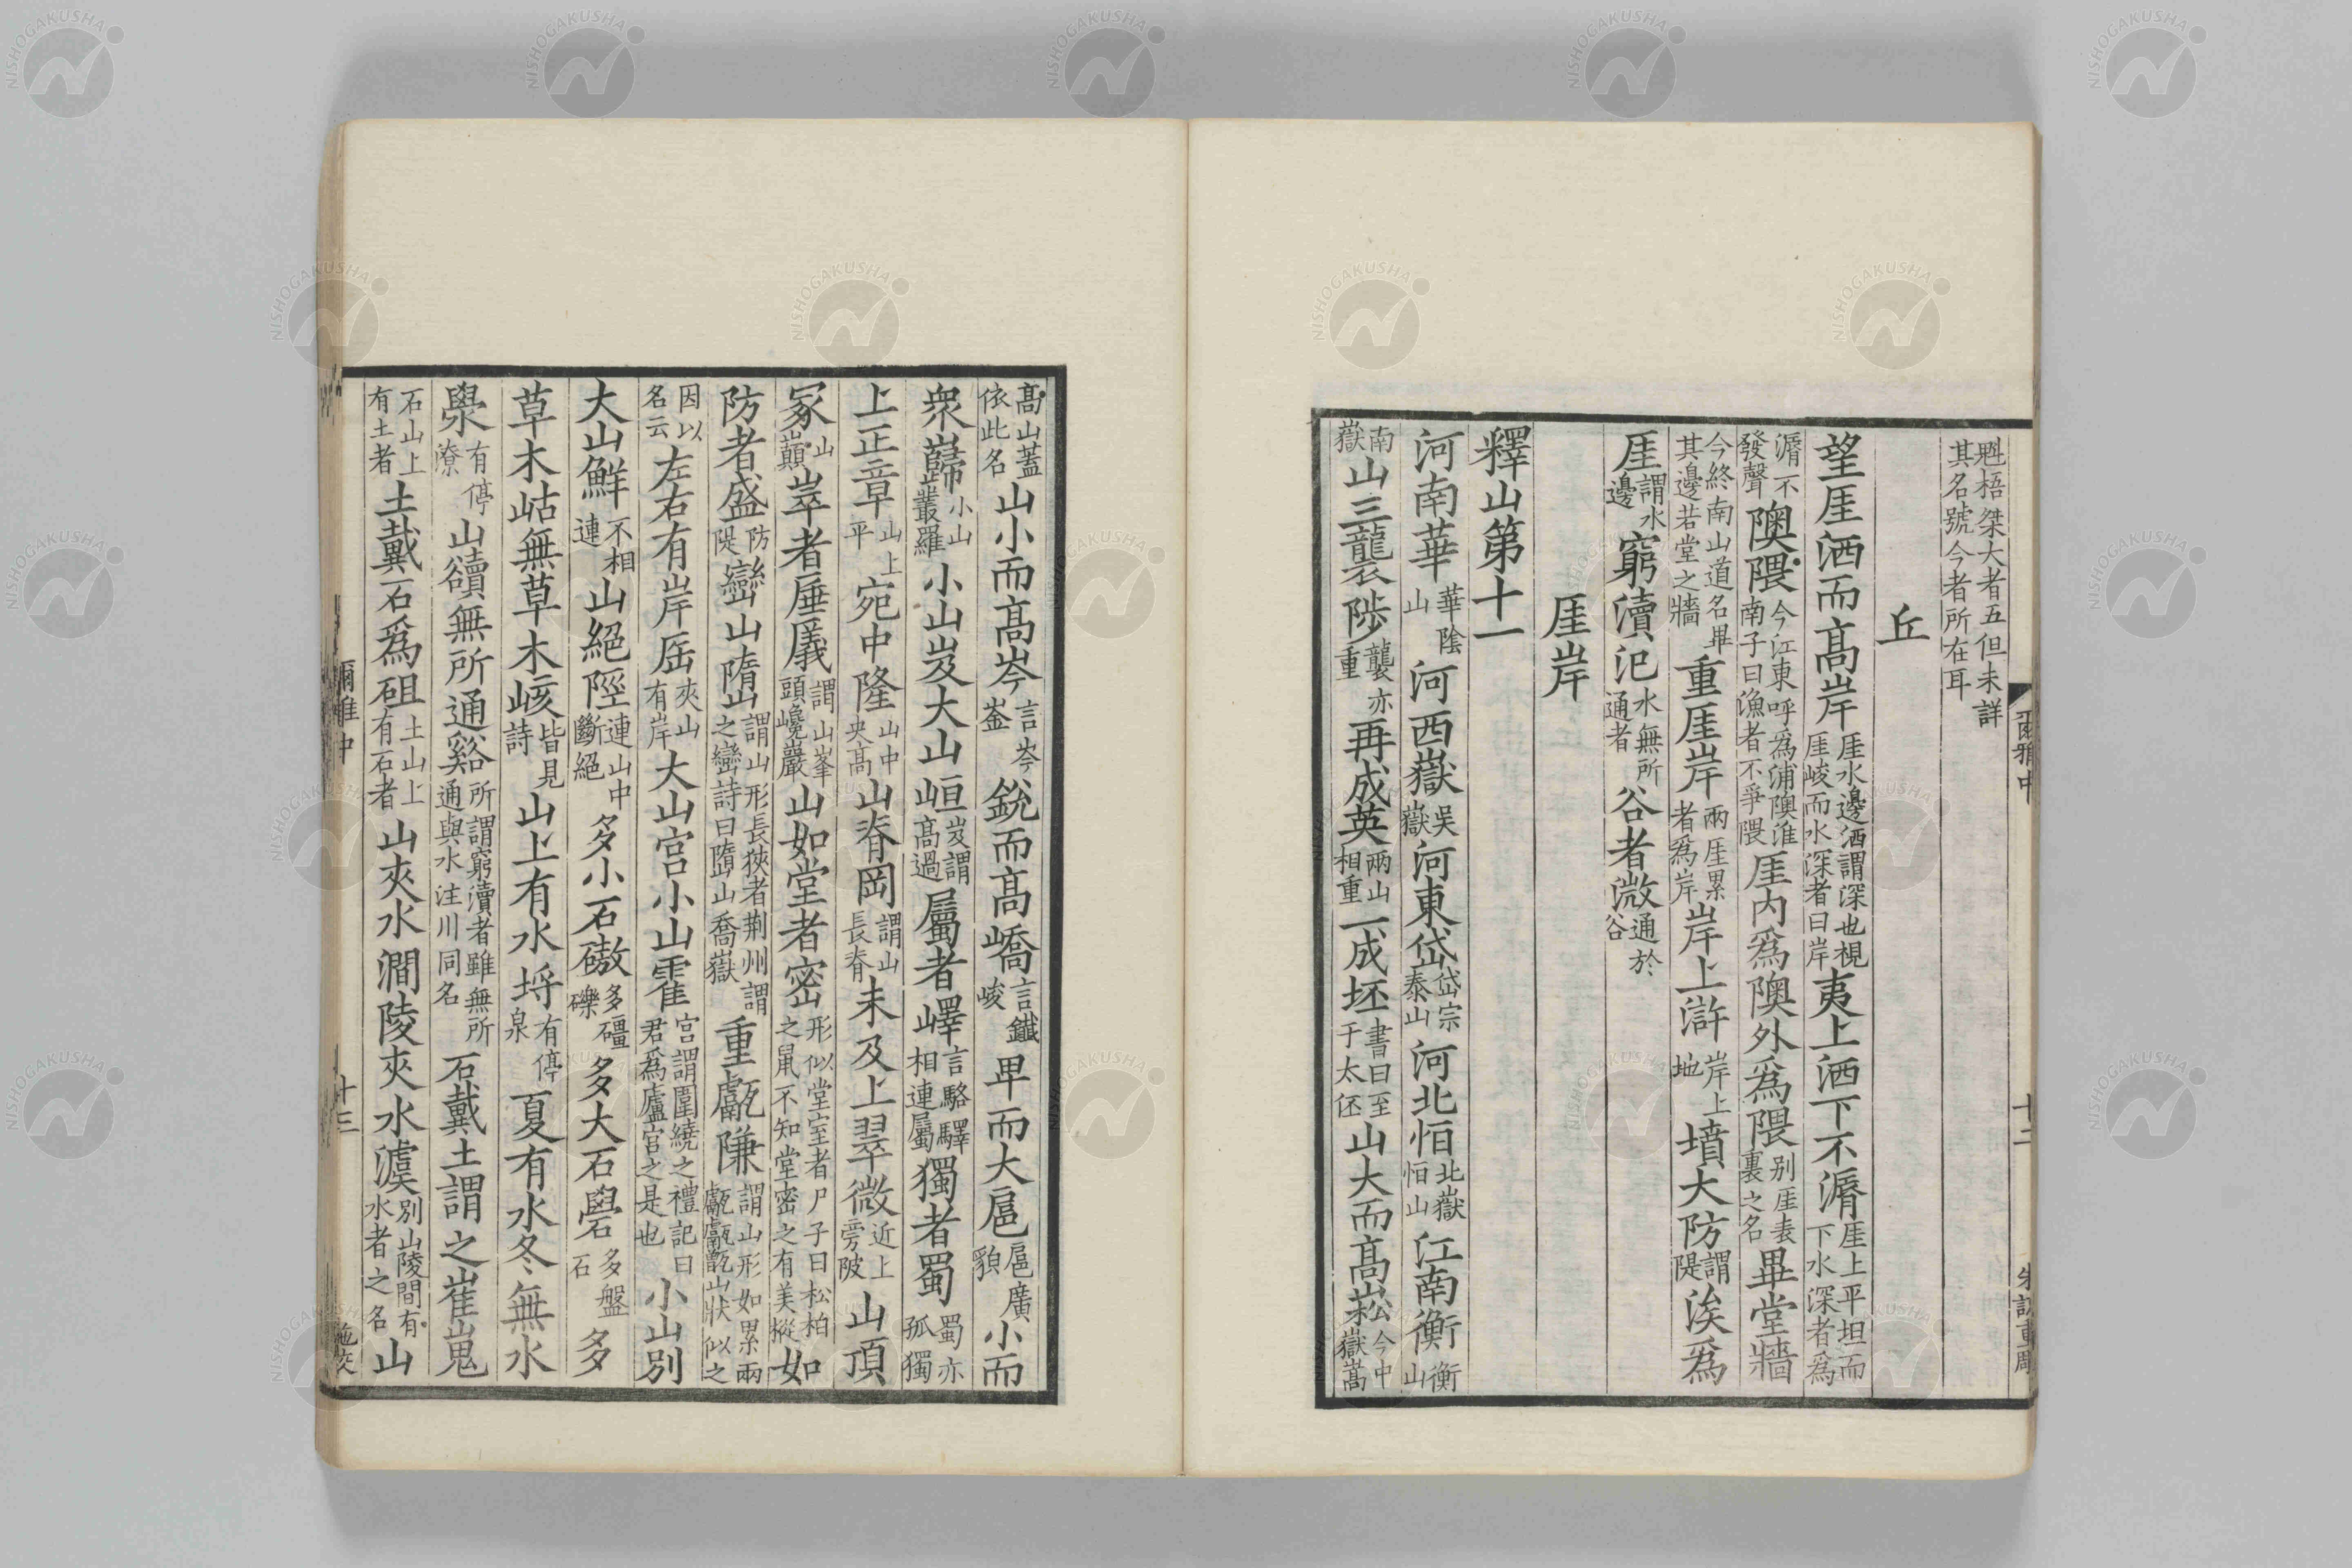 魁梧桀大者五但未詳其名號今者所在耳
丘
望厓洒而高岸厓水邊洒謂深也視厓峻而水深者曰岸夷上洒下不漘厓上平坦而下水深者為
漘不發聲隩隈今江東呼為浦隩淮南子曰漁者不爭隈厓内為隩外為隈别厓表裏之名畢堂牆
今終南山道名畢其邊若堂之牆重厓岸兩厓累者為岸岸上滸岸上地墳大防謂隄涘為
厓謂水邊窮瀆汜水無所通者谷者溦通於谷
厓岸
釋山第十一
河南華華陰山河西嶽吳嶽河東岱岱宗泰山河北恒北嶽恒山江南衡衡山
南嶽山三襲陟襲亦重再成英兩山相重一成坯書曰至于太伾山大而高崧今中嶽嵩
高山蓋依此名山小而高岑言岑崟銳而高嶠言鐵峻卑而大扈扈廣貌小而
衆巋小山叢羅小山岌大山峘岌謂高過屬者嶧言駱驛相連屬獨者蜀蜀亦孤獨
上正章山上平宛中隆山中央高山脊岡謂山長脊未及上翠微近上旁陂山頂
冢山巔崒者厜㕒謂山峯頭巉巖山如堂者密形似堂室者尸子曰松柏之鼠不知堂密之有美樅如
防者盛防隄巒山墮謂山形長狹者荆州謂之巒詩曰墮山喬嶽重甗隒謂山形如累兩甗甗甑山狀似之
因以名云左右有岸厒夾山有岸大山宮小山霍宮謂圍繞之禮記曰君為廬宮之是也小山别
大山鮮不相連山絕陘連山中斷絕多小石磝多礓礫多大石礐多盤石多
草木岵無草木峐皆見詩山上有水埒有停泉夏有水冬無水
澩有停潦山豄無所通谿所謂窮瀆者雖無所通與水注川同名石戴土謂之崔嵬
石山上有土者土戴石為砠土山上有石者山夾水澗陵夾水澞别山陵間有水者之名山
爾雅中
十三